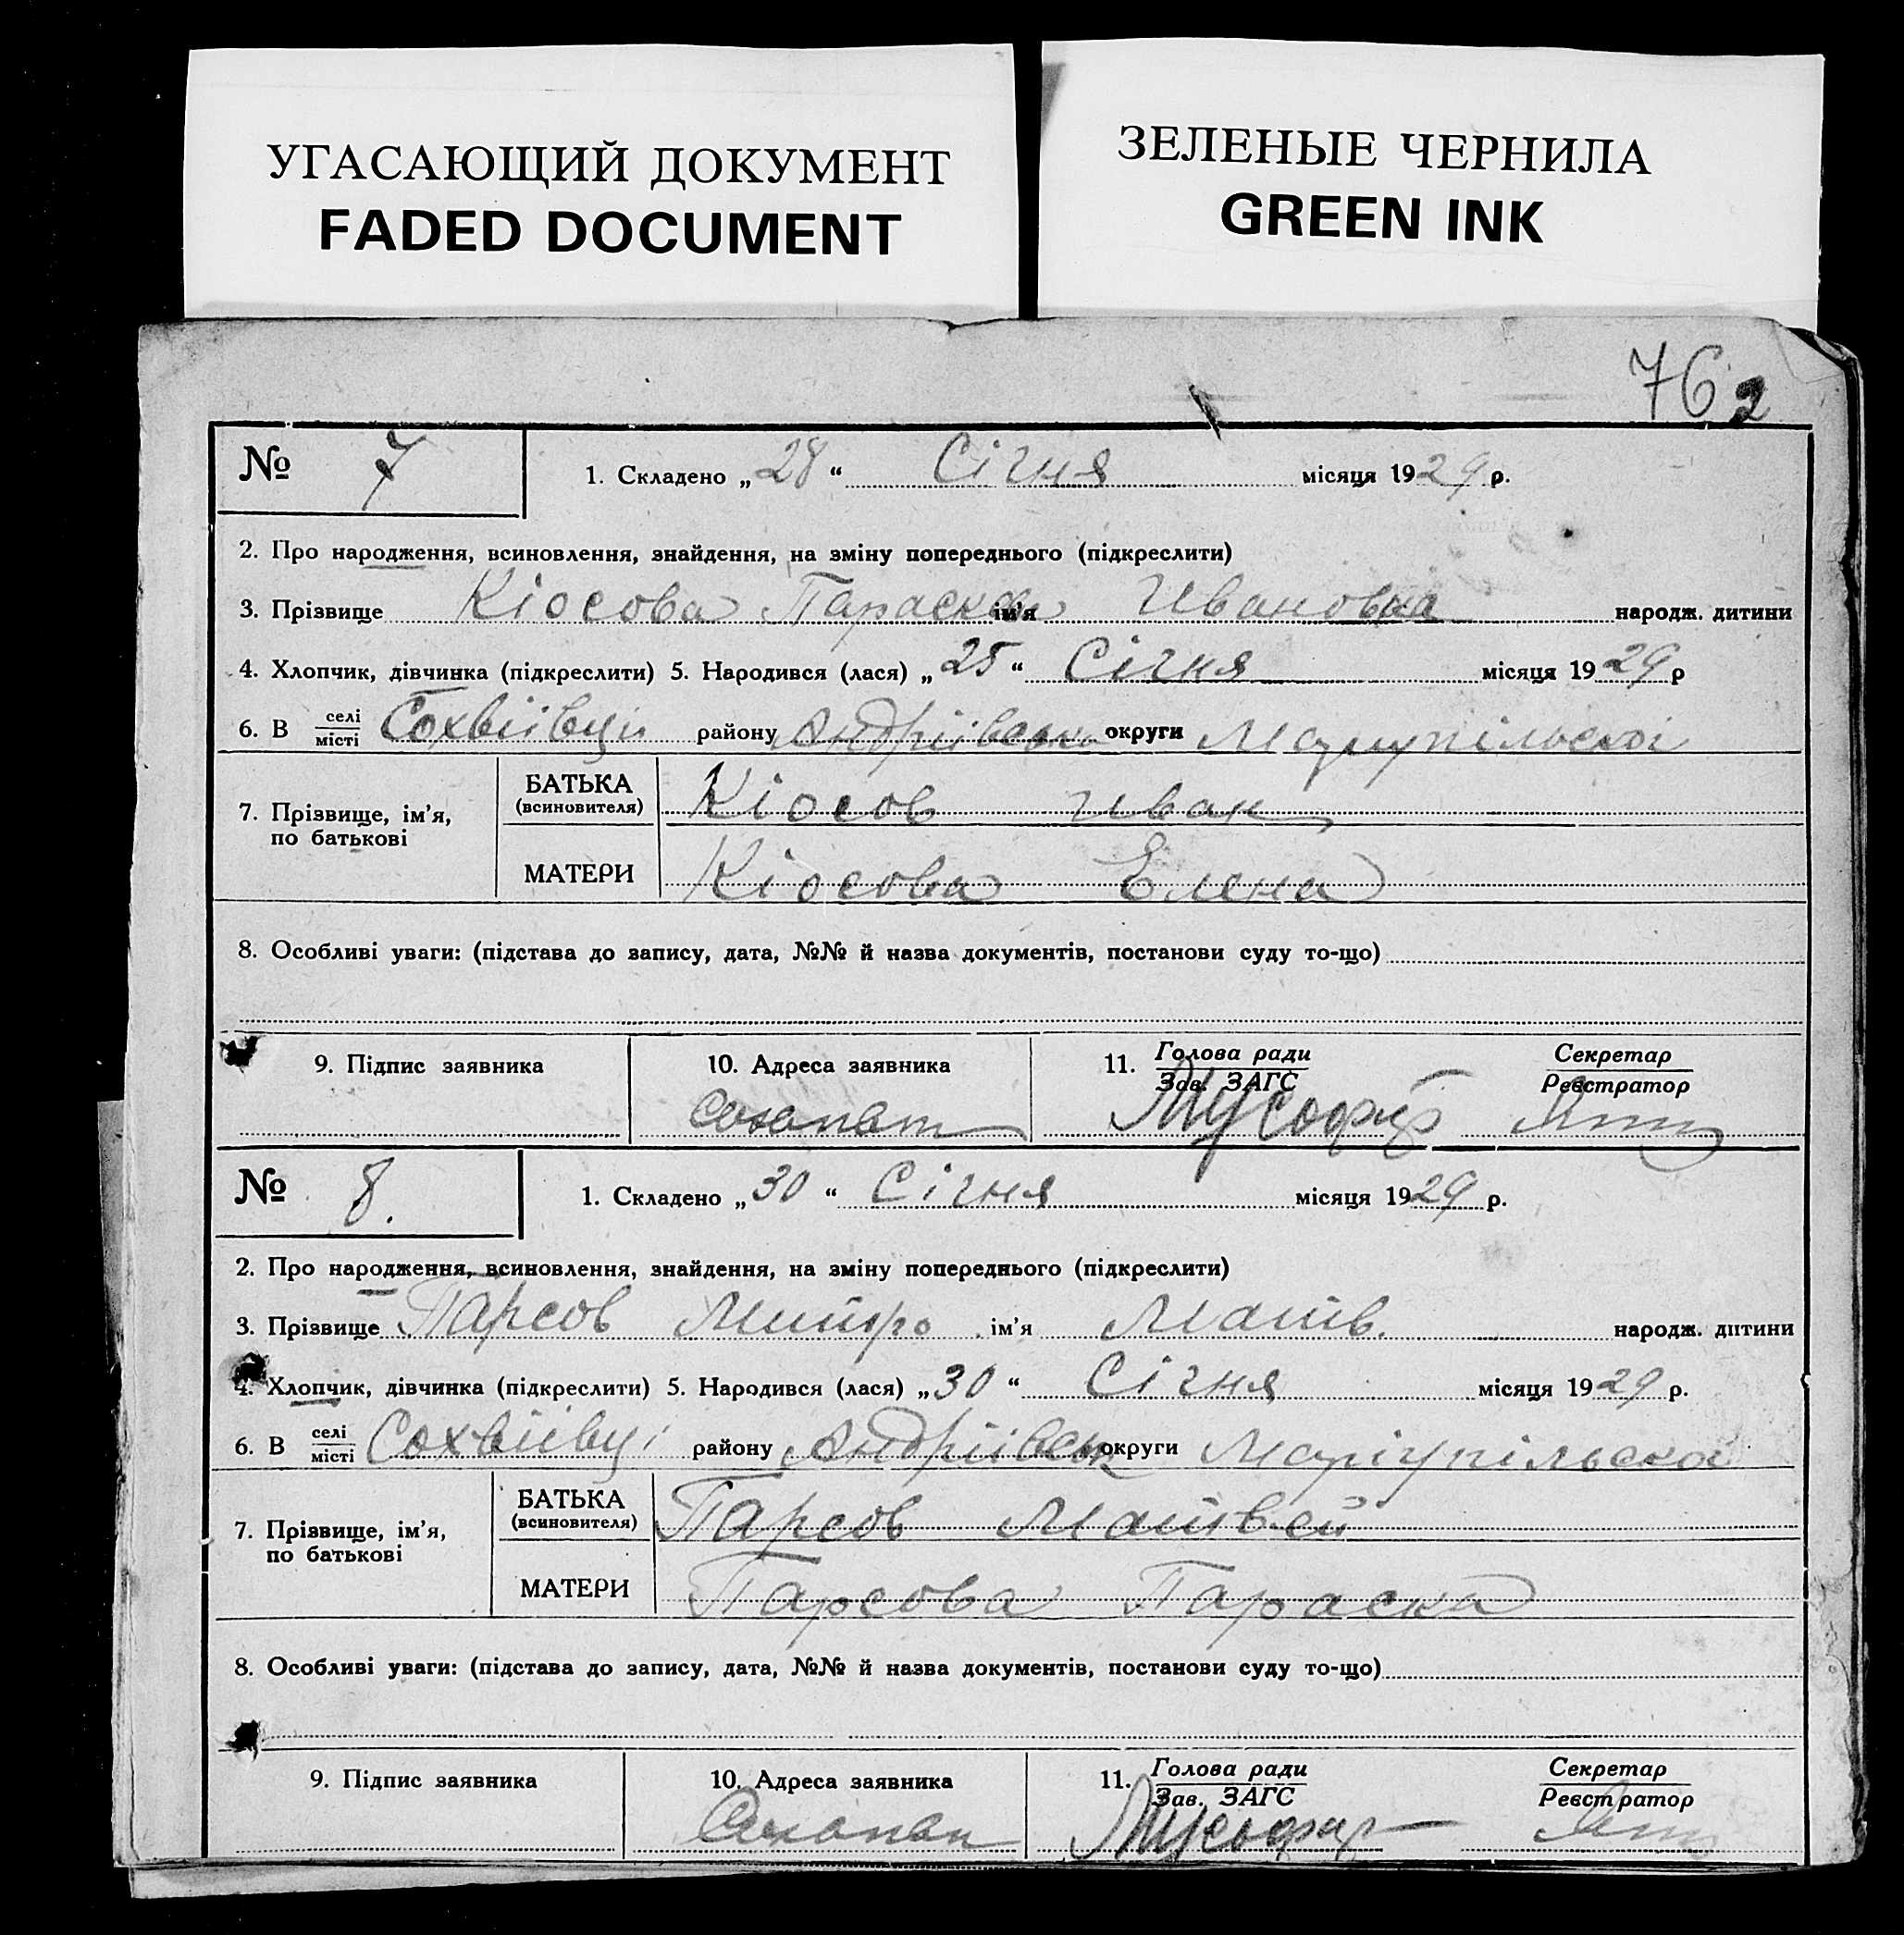 УГАСАЮЩИЙ ДОКУМЕНТ
FADED DOCUMENT
ЗЕЛЕНЫЕ ЧЕРНИЛА
GREEN INK
76 2
№ 7 1. Складено „28“ Січня місяця 1929 р.
2. Про народження, всиновлення, знайдення, на зміну попереднього (підкреслити)
3. Прізвище Кіосова Параска ім'я Ивановна народж. дитини
4. Хлопчик, дівчинка (підкреслити) 5. Народився (лася) „25“ Січня місяця 1929 р
6. В селі місті Сохвіівці району Андріівська округи Маріупільскоі
7. Прізвище, ім'я, по батькові
БАТЬКА (всиновителя) Кіосов Иван
МАТЕРИ Кіосова Елена
8. Особливі уваги: (підстава до запису, дата, №№ й назва документів, постанови суду то-що)
9. Підпис заявника 10. Адреса заявника 11. Голова ради Зав. ЗАГС Секретар Реєстратор
№ 8. 1. Складено „30“ Січня місяця 1929 р.
2. Про народження, всиновлення, знайдення, на зміну попереднього (підкреслити)
3. Прізвище Парсов Митро ім'я Матв. народж. дитини
4. Хлопчик, дівчинка (підкреслити) 5. Народився (лася) „30“ Січня місяця 1929 р.
6. В селі місті Сохвіівці району Андріівськ округи Маріупільскоі
7. Прізвище, ім'я, по батькові
БАТЬКА (всиновителя) Парсов Матвей
МАТЕРИ Парсова Параска
8. Особливі уваги: (підстава до запису, дата, №№ й назва документів, постанови суду то-що)
9. Підпис заявника 10. Адреса заявника 11. Голова ради Зав. ЗАГС Секретар Реєстратор